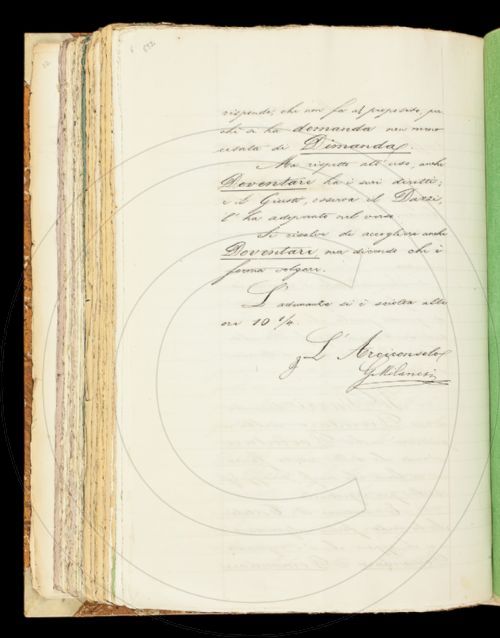 risponde, che non fa al proposito, per
chè si ha demanda non meno
usata di Dimanda.
Ma rispetto all' uso, anche
Doventare ha i suoi diritti;
e il Giusti, osserva il Dazzi,
l' ha adoperato nel verso
Si risolve di accogliere anche
Doventare, ma dicendo che è
forma volgare.
L' adunanza si è sciolta alle
ore 10 1/2.
L' Arciconsolo
G. Milanesi